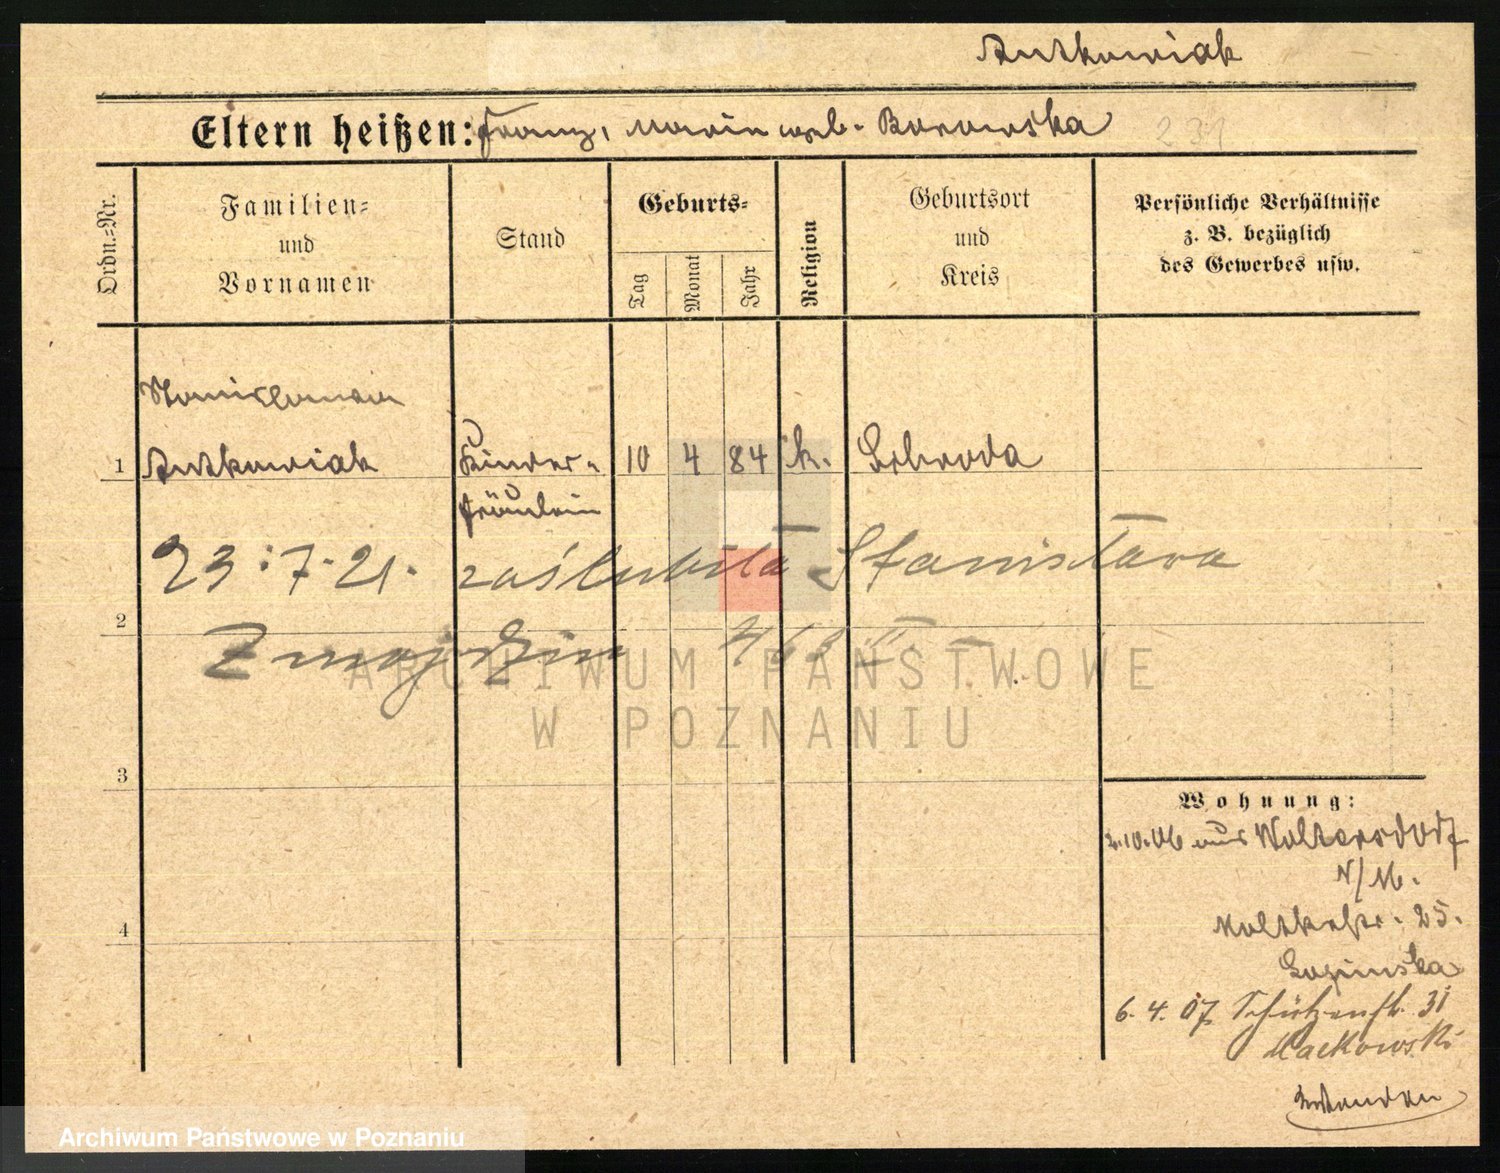 Antkowiak
Eltern heißen: Franz, Marie geb. Borowska 231
Ordn.=Nr.
Familien=
und
Vornamen
Stand
Geburts=
Tag
Monat
Jahr
Religion
Geburtsort
und
Kreis
Persönliche Verhältnisse
z. B. bezüglich
des Gewerbes usw.
Stanislawa
1 Antkowiak Kinder- 10 4 84 k. Schroda
fräulein
23.7.21. zaślubiła Stanisława
2
463 II
3
4
ARCHIWUM PAŃSTWOWE
W POZNANIU
Wohnung:
2.10.06 aus Woltersdorf
N/M.
Moltkestr. 25.
6.4.07 Schützenstr. 31
Maćkowski
Archiwum Państwowe w Poznaniu